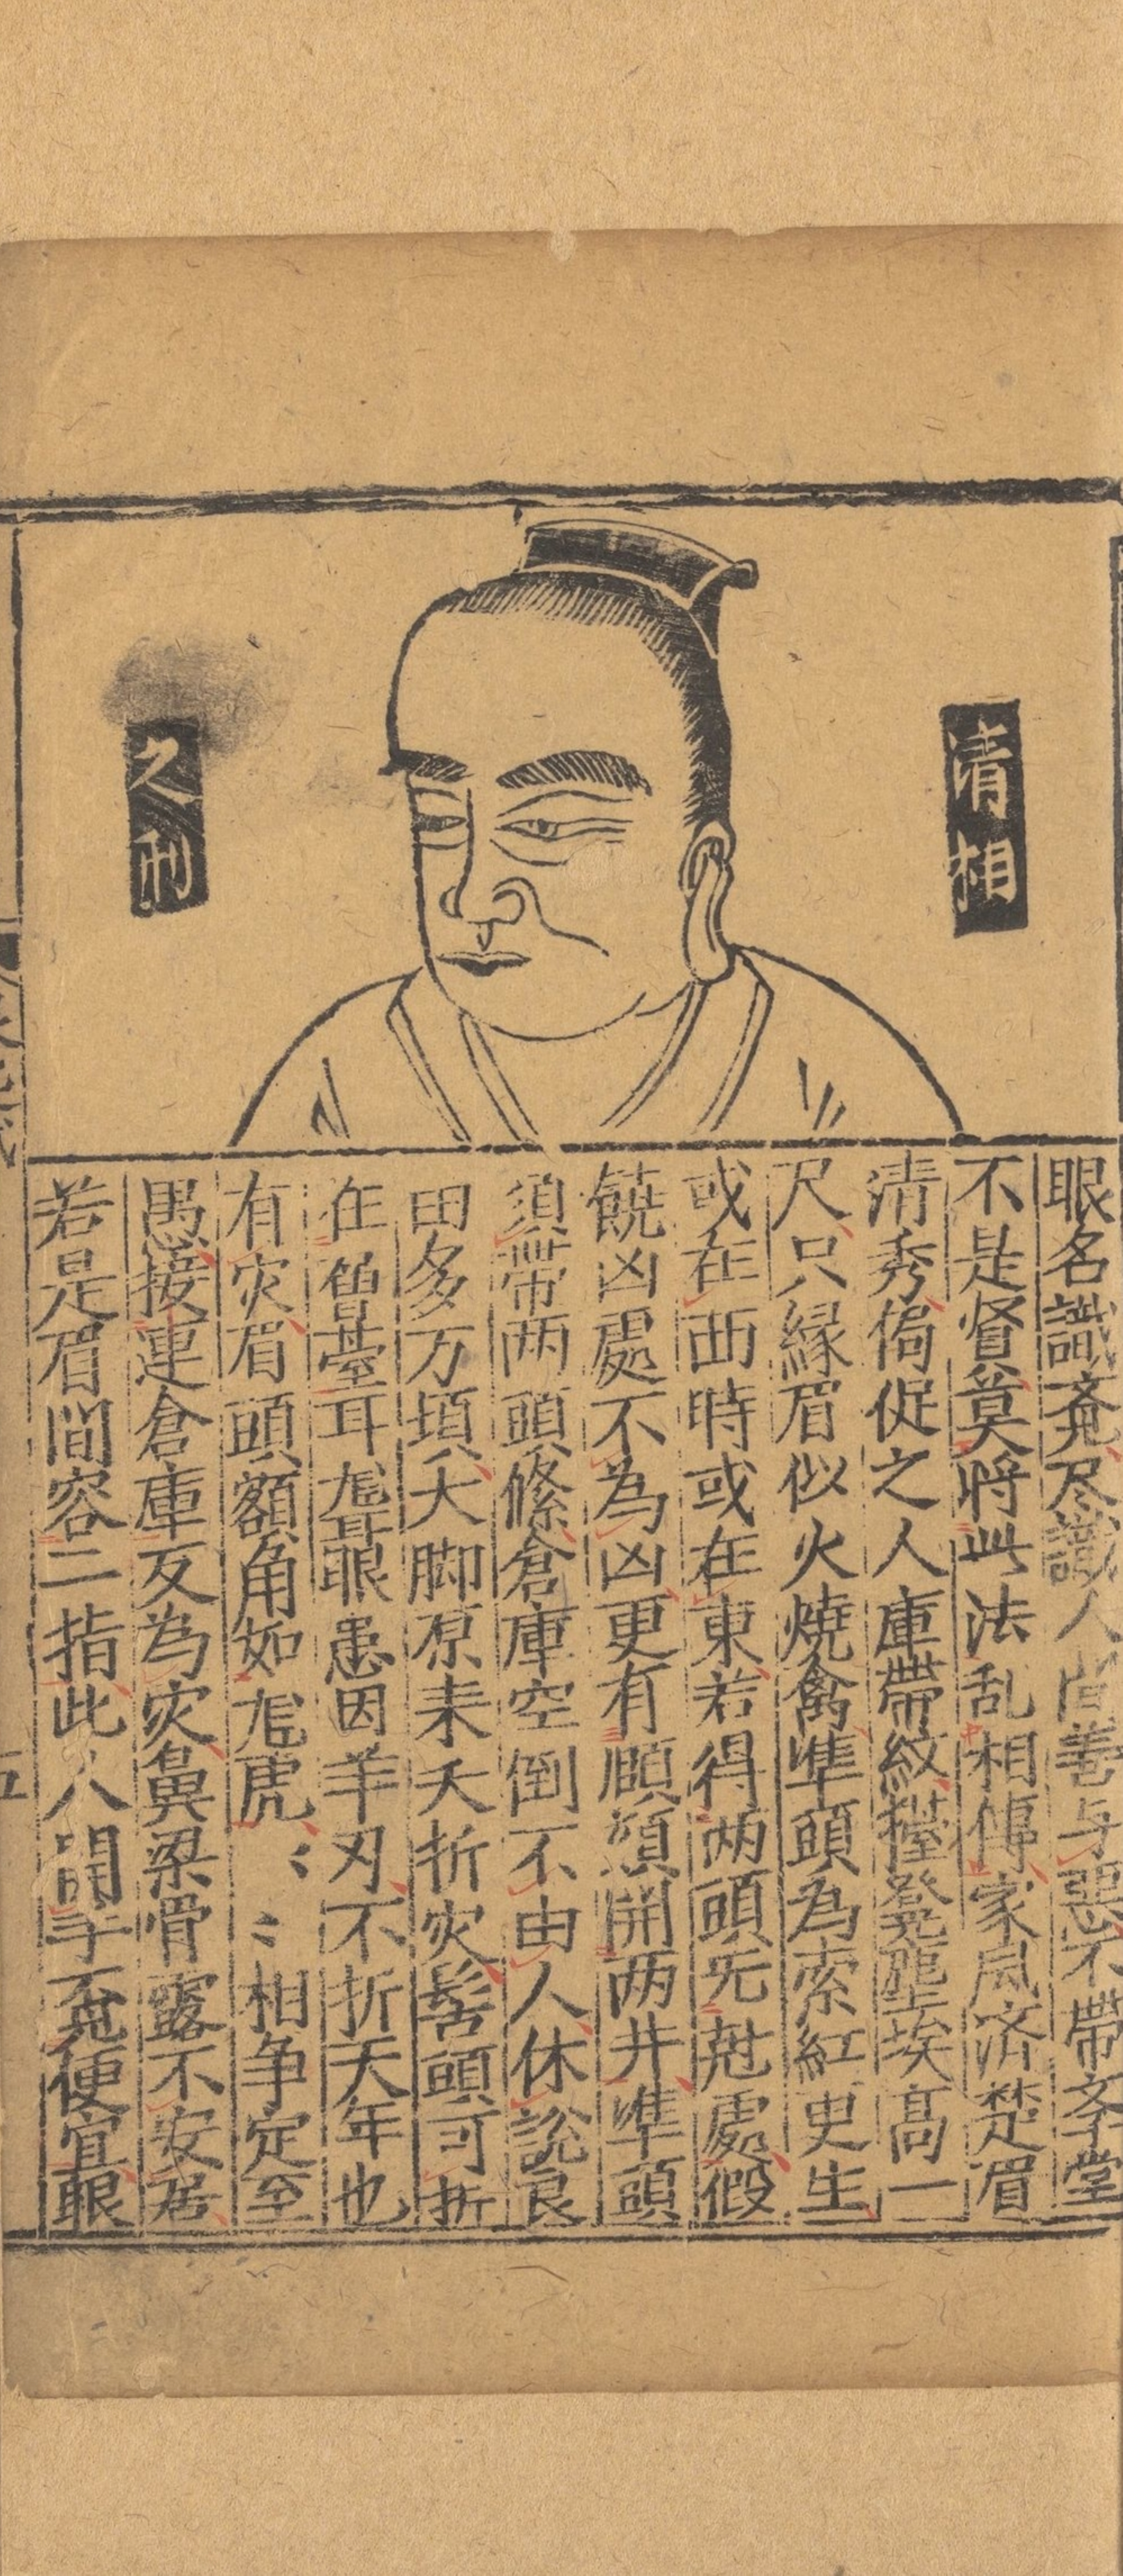 清相
之刑
眼名識斉尽識人間善与惡不帶斉堂
不是賢莫将此法乱相傳家風済楚眉
清秀偈促之人庫帶紋擡凳塵埃高一
尺只縁眉似火燒禽準頭為索紅史生
或在西時或在東若得两頭旡尅處假
饒凶處不為凶更有願須開两井準頭
須帶两頭絛倉庫空倒不由人休說良
田多万頃夭脚原来夭折灾髻頭可折
在魯臺耳尨聶眼患因羊刃不折天年也
有灾眉頭額角如尨虎〻〻相争定至
愚接連倉庫反為灾鼻梁骨露不安居
若是眉間容二指此人開手便宜眼
五